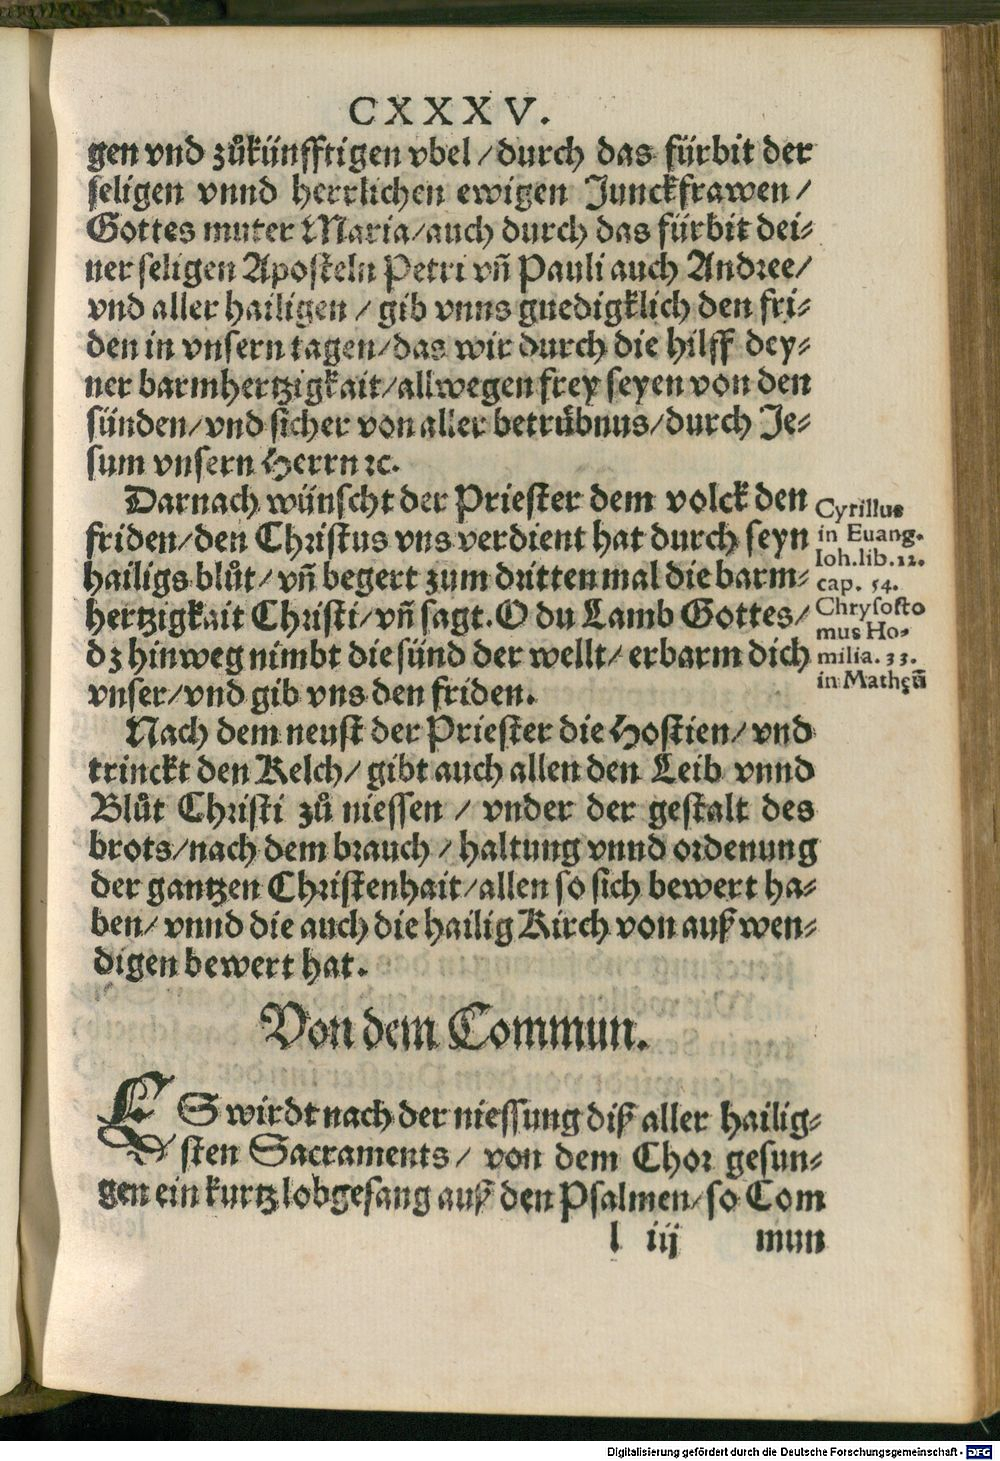 CXXXV.
gen vnd zůkünfftigen vbel / durch das fürbit der
seligen vnnd herrlichen ewigen Junckfrawen /
Gottes muter Maria / auch durch das fürbit dei⸗
ner seligen Aposteln Petri vñ Pauli auch Andree /
vnd aller hailigen / gib vnns gnedigklich den fri⸗
den in vnsern tagen / das wir durch die hilff dey⸗
ner barmhertzigkait / allwegen frey seyen von den
sünden / vnd sicher von aller betrůbnus / durch Je⸗
sum vnsern Herrn ꝛc.
Darnach wünscht der Priester dem volck den
friden / den Christus vns verdient hat durch seyn
hailigs blůt / vñ begert zum dritten mal die barm⸗
hertzigkait Christi / vñ sagt. O du Lamb Gottes /
dz hinweg nimbt die sünd der wellt / erbarm dich
vnser / vnd gib vns den friden.
Cyrillus
in Euang.
Ioh.lib.12.
cap. 54.
Chrysosto
mus Ho⸗
milia. 33.
in Mathęū
Nach dem neust der Priester die Hostien / vnd
trinckt den Kelch / gibt auch allen den Leib vnnd
Blůt Christi zů niessen / vnder der gestalt des
brots / nach dem brauch / haltung vnnd ordenung
der gantzen Christenhait / allen so sich bewert ha⸗
ben / vnnd die auch die hailig Kirch von außwen⸗
digen bewert hat.
Von dem Commun.
ES wirdt nach der niessung diß aller hailig⸗
sten Sacraments / von dem Chor gesun⸗
gen ein kurtz lobgesang auß den Psalmen / so Com
l iij mun
Digitalisierung gefördert durch die Deutsche Forschungsgemeinschaft - DFG